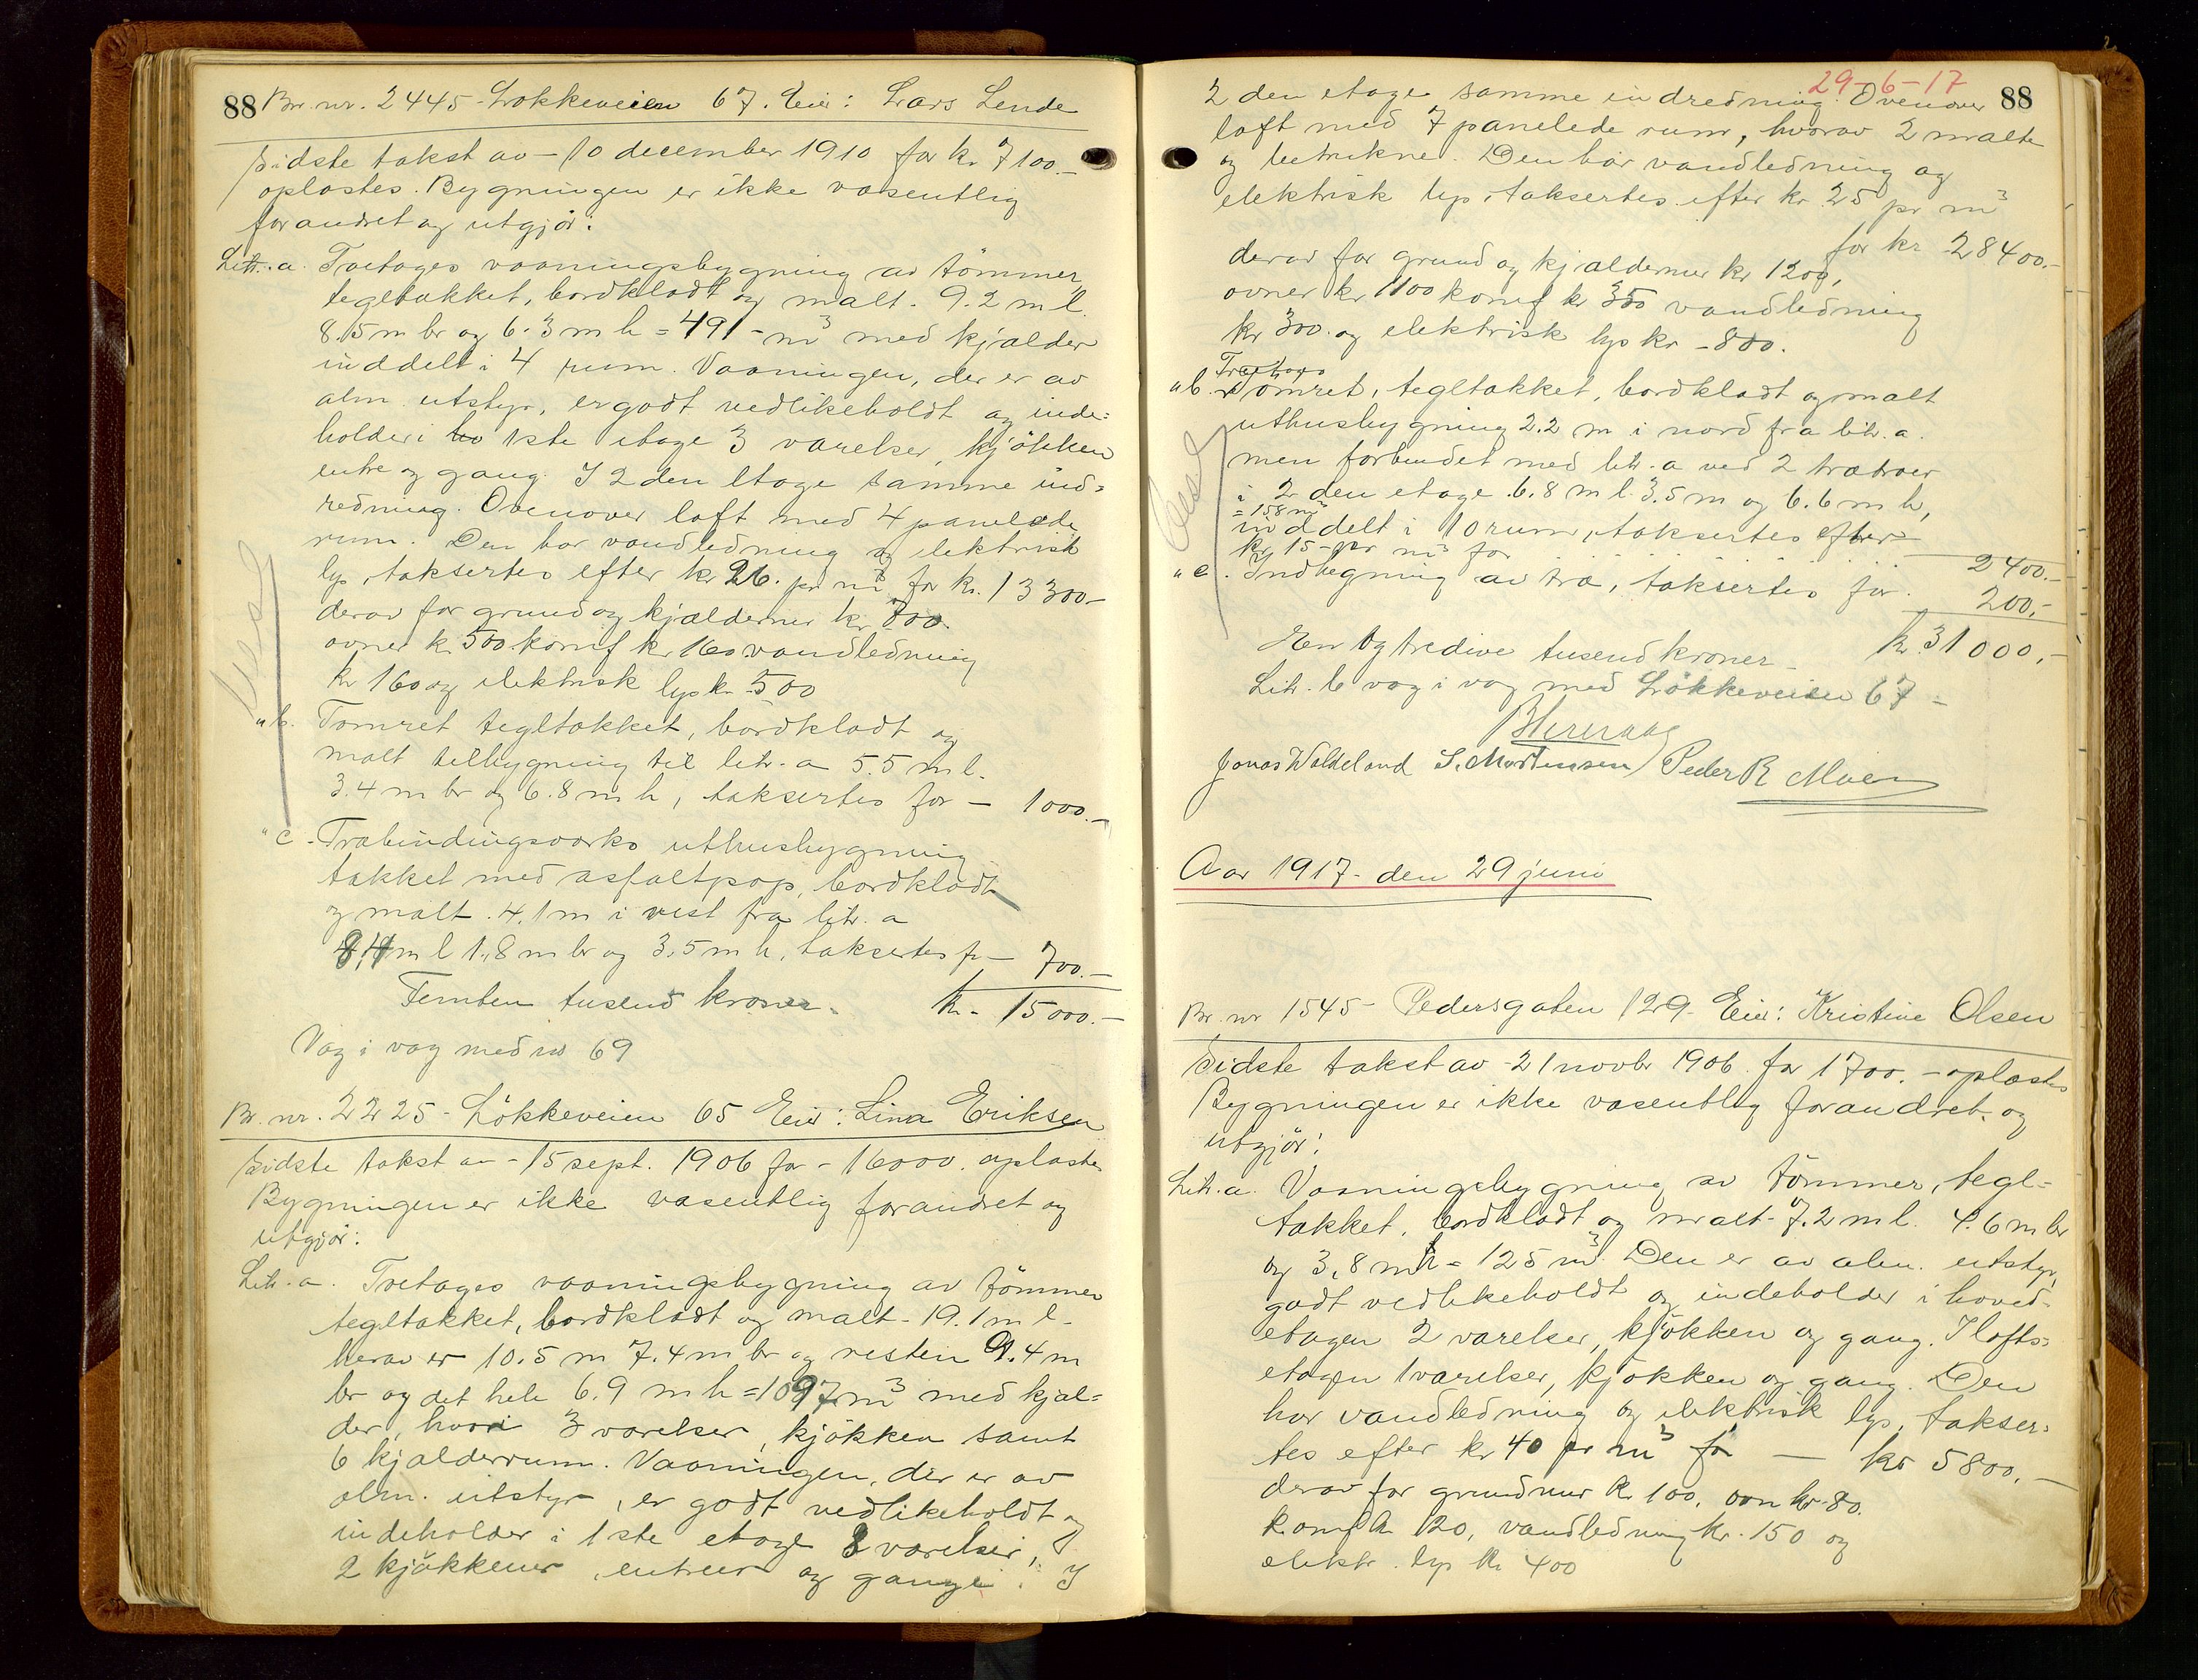 88 Br. nr. 2445 Løkkeveien 67. Eier: Lars Lende
Sidste takst av - 10 december 1910 for kr. 7100.-
oplæstes. Bygningen er ikke væsentlig
forandret og utgjør:
Litr. a. Toetages vaaningsbygning av tömmer,
tegltækket, bordklædt og malt. 9.2 m l.
8.5 m br og 6.3 m h = 491 - m³ med kjælder
inddelt i 4 rum. Vaaningen, der er av
alm. utstyr, er godt vedlikeholdt og inde=
holder i 1ste etage 3 værelser, kjökken
entre og gang. I 2den etage samme ind=
redning. Ovenover loft med 4 panelede
rum. Den har vandledning og elektrisk
lys, taksertes efter kr 26. pr m³ for kr. 13300.-
derav for grund og kjældermur kr 800.
ovner kr 500 komf kr 160 vandledning
kr 160 og elektrisk lys kr - 500
" b. Tømret tegltækket, bordklædt og
malt tilbygning til litr. a 5.5 m l.
3.4 m br og 6.8 m h, taksertes for - 1000.-
" c. Træbindingsværks uthusbygning
tækket med asfaltpap, bordklædt
og malt. 4.1 m i vest fra litr. a
m l 1.8 m br og 3.5 m h, taksertes for - 700.-
Femten tusend kroner. kr. 15000.-
Væg i væg med no 69
Br. nr. 2225 - Løkkeveien 65 Eier: Lina Eriksen
Sidste takst av - 15 sept. 1906 for - 16000. oplæstes
Bygningen er ikke væsentlig forandret og
utgjør:
Litr. a. Toetages vaaningsbygning av tömmer
tegltækket, bordklædt og malt - 19.1 m l -
herav er 10.5 m 7.4 m br og resten 9.4 m
br og det hele 6.9 m h = 1097 m³ med kjæl=
der, hvori 3 værelser, kjökken samt
6 kjælderrum. Vaaningen, der er av
alm. utstyr, er godt vedlikeholdt og
indeholder i 1ste etage 8 værelser,
2 kjökkener, entreer og gange. I
29-6-17
2den etage samme indredning. Ovenover 88
loft med 7 panelede rum, hvorav 2 malte
og betrukne. Den har vandledning og
elektrisk lys, taksertes efter kr 25 pr m³
for kr 28400.-
derav for grund og kjældermur kr 1200,
ovner kr 1100 komf kr 350 vandledning
kr 300. og elektrisk lys kr - 800.
Træetages
" b. Tømret, tegltækket, bordklædt og malt
uthusbygning 2.2 m i nord fra litr. a.
men forbundet med litr. a ved 2 trætroer
i 2den etage. 6.8 m l. 3.5 m og 6.6 m h,
= 158 m³
inddelt i 10 rum, taksertes efter
kr. 15 - pr m³ for 2400.-
" c. Indhegning av træ, taksertes for 200,-
En og tredive tusend kroner - kr. 31000,-
Litr. b væg i væg med Løkkeveien 67 -
Jonas Waldeland S. Mortensen Peder R Moen
Aar 1917 - den 29 juni
Br. nr 1545 - Pedersgaten 129 - Eier: Kristine Olsen
Sidste takst av - 21 novbr 1906. for 1700. - oplæstes
Bygningen er ikke væsentlig forandret. og
utgjør:
Litr. a. Vaaningsbygning av tömmer, tegl=
tækket, bordklædt og malt - 7.2 m l. 4.6 m br
og 3,8 m h = 125 m³. Den er av alm. utstyr,
godt vedlikeholdt og indeholder i hoved-
etagen 2 værelser, kjökken og gang. I lofts=
etagen 1 værelser, kjøkken og gang. Den
har vandledning og elektrisk lys, takser=
tes efter kr 40 pr m³ for - kr 5800.-
derav for grundmur kr 100, ovn kr. 80.
komf kr 120, vandledning kr. 150 og
elektr. lys kr 400